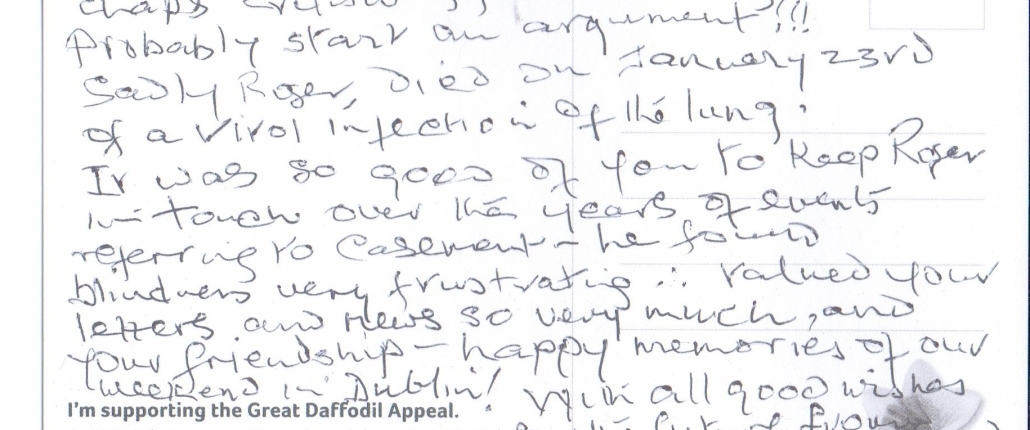 chaps
Probably start an argument!!!
Sadly Roger, Died on January 23rd
of a viral infection of the lung.
It was so good of you to keep Roger
in touch over the years, of events
referring to Casement - he found
blindness very frustrating ∴ valued your
letters and news so very much, and
your friendship - happy memories of our
weekend in Dublin! With all good wishes
I'm supporting the Great Daffodil Appeal.
from